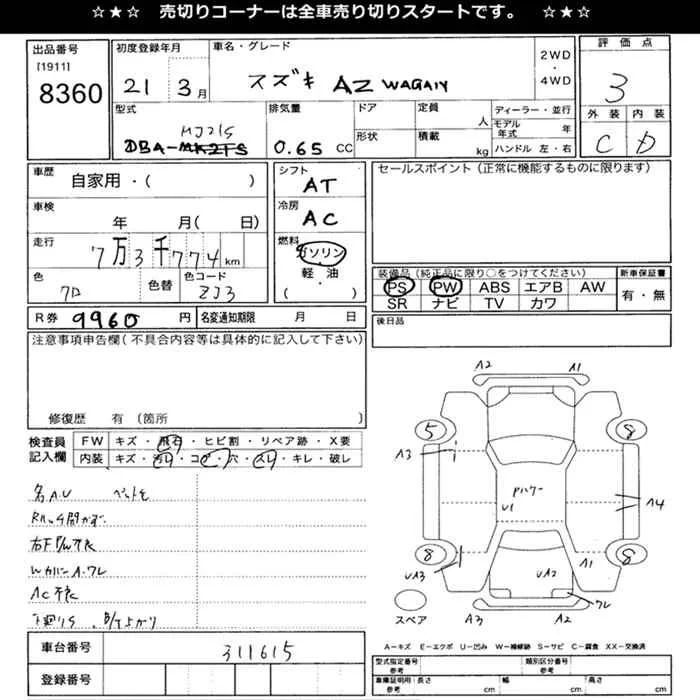 ☆★☆ 売切りコーナーは全車売り切りスタートです。 ☆★☆
出品番号
[1911]
8360
初度登録年月
21 3月
車名・グレード
スズキ AZ WAGAN
2WD
・
4WD
評価点
3
外装 内装
C D
型式
MJ21S
DBA-
排気量
0.65 CC
ドア
形状
定員
人
積載
kg
ディーラー・並行
モデル年式 年
ハンドル 左・右
車歴
自家用・( )
車検
年 月( 日)
走行
7万3千774km
色
クロ
色替
色コード
ZJ3
シフト
AT
冷房
AC
燃料
ガソリン
軽・油
( )
セールスポイント(正常に機能するものに限ります)
装備品(純正品に限り○をつけてください)
PS PW ABS エアB AW
SR ナビ TV カワ
新車保証書
有・無
後日品
R券 9960 円
名変通知期限 月 日
注意事項申告欄(不具合内容等は具体的に記入して下さい)
修復歴 有(箇所 )
検査員記入欄
FW キズ・飛石・ヒビ割・リペア跡・X要
内装 キズ・汚レ・コゲ・穴・スレ・キレ・破レ
AC不良
車台番号
311615
登録番号
A2 A1
5 8
A3
Pハケー
U1
A4
8 8
UA3
UA2
A1
ワレ
スペア
A3 A2
A-キズ E-エクボ U-凹み W-補修跡 S-サビ C-腐食 XX-交換済
型式指定番号
参考
類別区分番号
参考
車庫証明用
参考
長さ cm
幅 cm
高さ cm